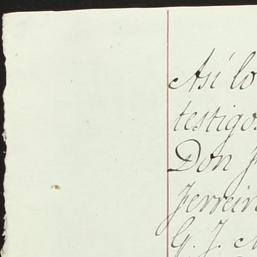 Así lo
testigos
Don J
Ferreir
G. J.